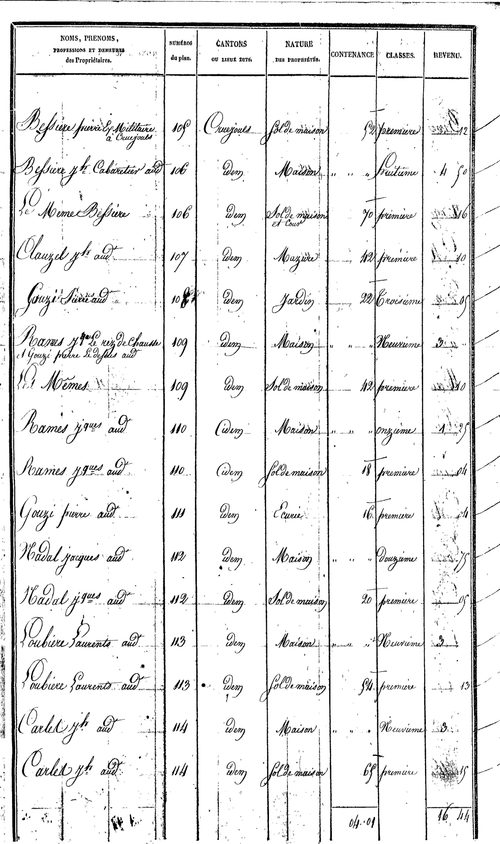 NOMS, PRENOMS, PROFESSIONS ET DEMEURES des Propriétaires. NUMÉROS du plan. CANTONS OU LIEUX DITS. NATURE DES PROPRIÉTÉS. CONTENANCE. CLASSES. REVENU.
Bessiere pierre Militaire a Cruejouls 105 Cruejouls Sol de maison 52 premiere 12
Bessiere jh Cabaretier aud 106 idem Maison " " " huitième 4 50
Le Meme Bessiere 106 idem Sol de maison et Cour 70 premiere 16
Clauzel jh aud 107 idem Mazière 42 premiere 10
Gouzi Pierre aud 108 idem Jardin 22 Troisieme 05
Rames jques Le rez de Chausse et Gouzi pierre Le dessus aud 109 idem Maison " " " Neuvieme 3
Les Mêmes 109 idem Sol de maison 42 premiere 10
Rames jques aud 110 idem Maison " " " onzieme 1 25
Rames jques aud 110 idem Sol de maison 18 premiere 04
Gouzi pierre aud 111 idem Ecurie 16 premiere 4
Nadal jacques aud 112 idem Maison " " " douzieme 75
Nadal jques aud 112 idem Sol de maison 20 premiere 05
Loubière Laurents aud 113 idem Maison " " " Neuvieme 3
Loubière Laurents aud 113 idem Sol de maison 54 premiere 13
Carlet jh aud 114 idem Maison " " " Neuvieme 3
Carlet jh aud 114 idem Sol de maison 65 premiere 15
04.01 16 44